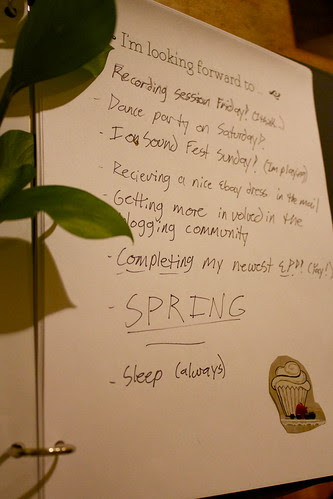 I'm looking forward to...
- Recording session Friday!
- Dance party on Saturday!?
- Sound Fest Sunday! (I'm playing)
- Recieving a nice Ebay dress in the mail
- Getting more involved in the
blogging community
- Completing my newest EP!! (Yay!)
- SPRING
- Sleep (always)